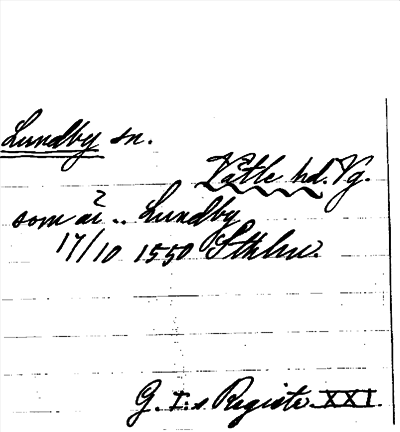 Lundby sn.
Vättle hd. Vg.
som är .. Lundby
17/10 1550 Sthlm.
G. I:s Registr. XXI.